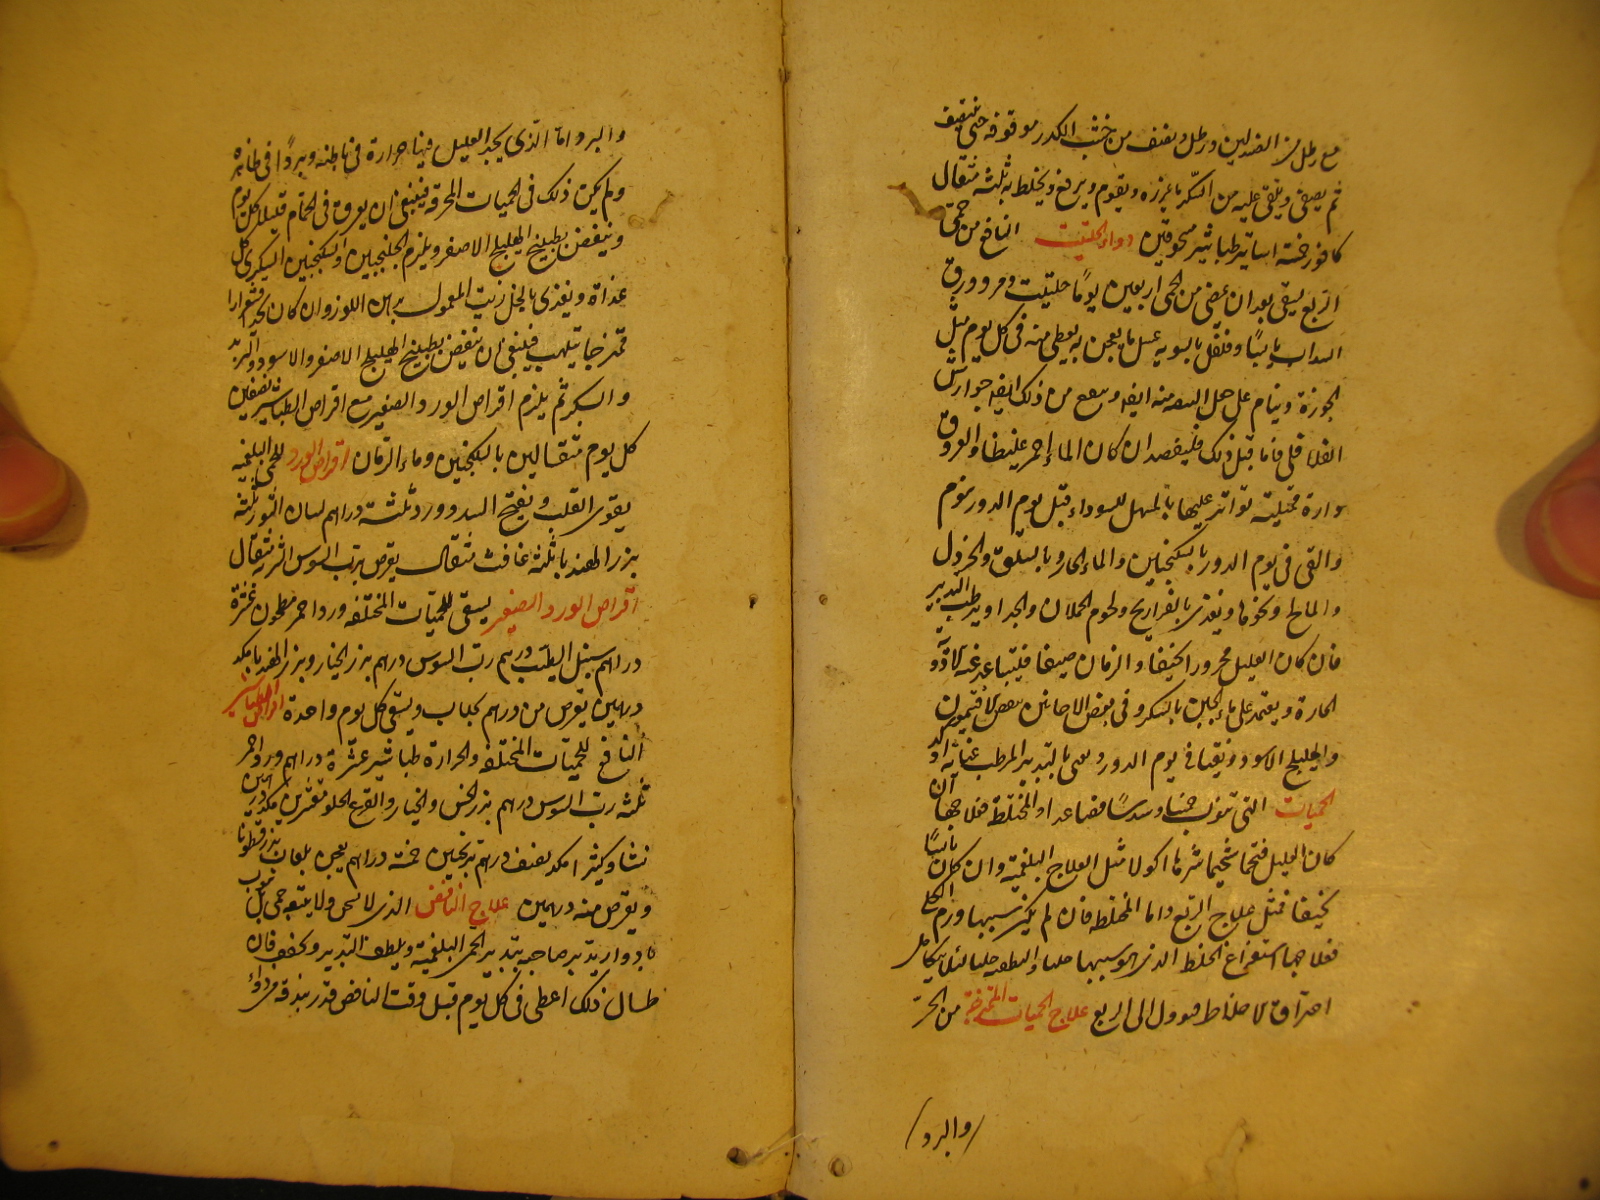 مع رطل من الصندلين ورطل ونصف من خشب الكدر موقوفه حتى
ثم يصفى ويلقى عليه من السكر ما غرزه ويقوم ويرفع ويخلط به ثلثة مثقال
كافور خمسة اساتير طباشير مسحوقين دواء الحلتيت النافع من حمى
الربع يسقى بعد ان يمضى من الحمى اربعين يوما حلتيت ومر وورق
السداب يابسا وفلفل بالسويه عسل ما يعجن به يعطى منه فى كل يوم مثل
الجوزة وينام على من ذلك ايضا جوارش
الفلافلى فاما قبل ذلك فليفصد ان كان الماء احمر غليظا والعروق
وارة ممتلية تواتر عليها بالمسهل للسوداء قبل يوم الدور بيوم
والقى فى يوم الدور بالسكنجبين والماء الحار وبالسلق والخردل
والمالح ونحوها ويغذى بالفراريج ولحوم الحملان والجدا ويرطب التدبير
فان كان العليل محرورا نحيفا والزمان صيفا فليتباعد عنه الادوية
الحارة ويعتمد على ماء الجبن بالسكر وفى بعض الاحايين بعض الافتيمون
والهليلج الاسود ونقيا فى يوم الدور بالتدبير المرطب
الحميات التى تنوب خمسا وسدسا فصاعدا والمختلطة فعلاجها ان
كان العليل شحيما شرها اكولا مثل العلاج البلغمية وان كان يابسا
نحيفا فمثل علاج الربع واما المختلطه فان لم يكن سببها ورم
فعلاجها استفراغ الخلط الذى هو سببها لئلا يتكامل
احتراق الاخلاط فيوول الى الربع علاج الحميات الممتزجة من الحر
والبرد
والبرد واما الذى يجد العليل فيها حرارة فى باطنه وبردا فى ظاهره
ولم يكن ذلك فى الحميات المحرقة فينبغى ان يعرق فى الحمام قليلا كل يوم
وينفض بطبيخ الهليلج الاصفر ويلزم الجلنجبين والسكنجبين السكرى كل
غداة ويغذى بالخل زيت المعمول بدهن اللوز وان كان يجد اقشعرارا
قد خبا يتلهب فينبغى ان ينفض بطبيخ الهليلج الاصفر والاسود والتربد
والسكر ثم يلزم اقراص الورد الصغير مع اقراص الطباشير نصفين
كل يوم مثقالين بالسكنجبين وماء الرمان اقراص الورد للحمى البلغميه
يقوى القلب ويفتح السدد ورد ثلثة دراهم لسان الثور ثلثة
بزر الهندبا ثلثة غافث مثقال يقرص برب السوس الشربة مثقال
اقراص الورد الصغير يسقى للحميات المختلفه ورد احمر مطحون عشرة
دراهم سنبل الطيب درهم رب السوس درهم بزر الخيار وبزر الهندبا مكد
درهمين يقرص من درهم كباب ويسقى كل يوم واحدة اقراص الطباشير
النافع للحميات المختلفه والحرارة طباشير عشرة دراهم ورد احمر
ثلثه رب السوس درهم بزر الخس والخيار والقرع الحلو مقشرين مكد درهمين
نشا وكثيرا مكد نصف درهم ترنجبين خمسة دراهم يعجن بلعاب بزر قطونا
ويقرص منه درهمين علاج النافض الذى لا يسخن ولا يتبعه حمى بل ينوب
بادوار يدبر صاحبه بتدبير الحمى البلغمية ويلطف التدبير ويخفف فان
طال ذلك اعطى فى كل يوم قبل وقت النافض قدر بندقه من دواء